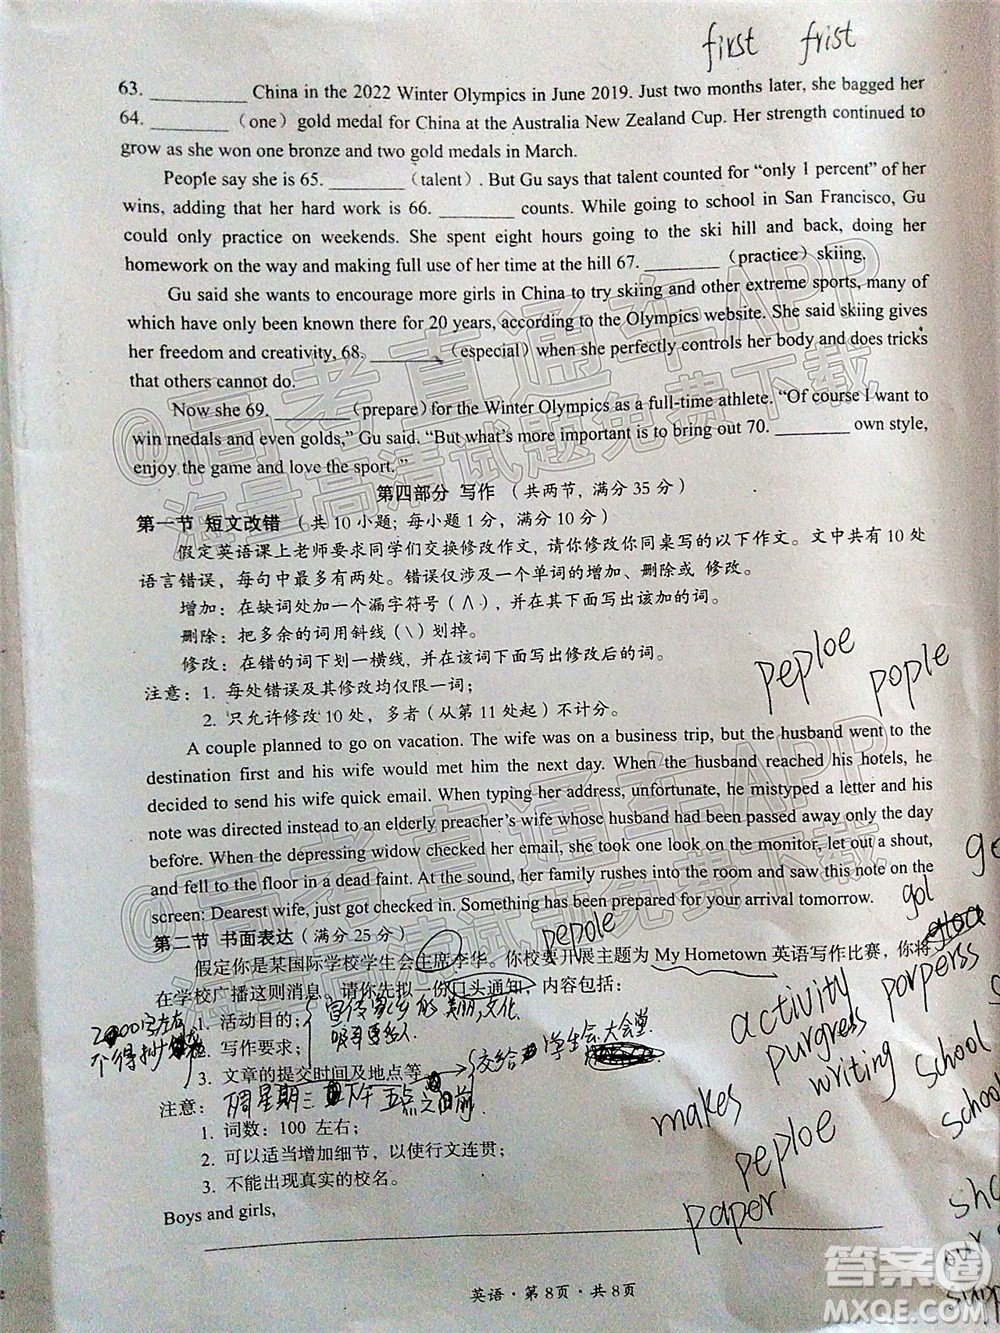 first frist
63. ________ China in the 2022 Winter Olympics in June 2019. Just two months later, she bagged her
64. ________ (one) gold medal for China at the Australia New Zealand Cup. Her strength continued to
grow as she won one bronze and two gold medals in March.
People say she is 65. ________ (talent). But Gu says that talent counted for “only 1 percent” of her
wins, adding that her hard work is 66. ________ counts. While going to school in San Francisco, Gu
could only practice on weekends. She spent eight hours going to the ski hill and back, doing her
homework on the way and making full use of her time at the hill 67. ________ (practice) skiing.
Gu said she wants to encourage more girls in China to try skiing and other extreme sports, many of
which have only been known there for 20 years, according to the Olympics website. She said skiing gives
her freedom and creativity, 68. ________ (especial) when she perfectly controls her body and does tricks
that others cannot do.
Now she 69. ________ (prepare) for the Winter Olympics as a full-time athlete. “Of course I want to
win medals and even golds,” Gu said. “But what’s more important is to bring out 70. ________ own style,
enjoy the game and love the sport.”
第四部分 写作 (共两节, 满分 35 分)
第一节 短文改错 (共 10 小题; 每小题 1 分, 满分 10 分)
假定英语课上老师要求同学们交换修改作文, 请你修改你同桌写的以下作文。文中共有 10 处
语言错误, 每句中最多有两处。错误仅涉及一个单词的增加、删除或 修改。
增加: 在缺词处加一个漏字符号 (∧), 并在其下面写出该加的词。
删除: 把多余的词用斜线 (\) 划掉。
修改: 在错的词下划一横线, 并在该词下面写出修改后的词。
peploe
pople
注意: 1. 每处错误及其修改均仅限一词;
2. 只允许修改 10 处, 多者 (从第 11 处起) 不计分。
A couple planned to go on vacation. The wife was on a business trip, but the husband went to the
destination first and his wife would met him the next day. When the husband reached his hotels, he
decided to send his wife quick email. When typing her address, unfortunate, he mistyped a letter and his
note was directed instead to an elderly preacher’s wife whose husband had been passed away only the day
before. When the depressing widow checked her email, she took one look on the monitor, let out a shout,
and fell to the floor in a dead faint. At the sound, her family rushes into the room and saw this on the
screen: Dearest wife, just got checked in. Something has been prepared for your arrival tomorrow.
gol
第二节 书面表达 (满分 25 分)
pepole
假定你是某国际学校学生会主席李华。你校要开展主题为 My Hometown 英语写作比赛, 你将
在学校广播这则消息, 请你先拟一份口头通知, 内容包括:
1. 活动目的;
2. 写作要求;
3. 文章的提交时间及地点等。
宣传家乡的美丽、文化
交给 学生会大会堂
周星期三 下午 五点之前
注意:
1. 词数: 100 左右;
2. 可以适当增加细节, 以使行文连贯;
3. 不能出现真实的校名。
Boys and girls,
activity porperss
purgress
writing school
makes
peploe
paper
英语 · 第 8页 · 共 8页
@高考直通车APP
海量高清试题免费下载
@高考直通车APP
海量高清试题免费下载
答案圈
MXQE.COM